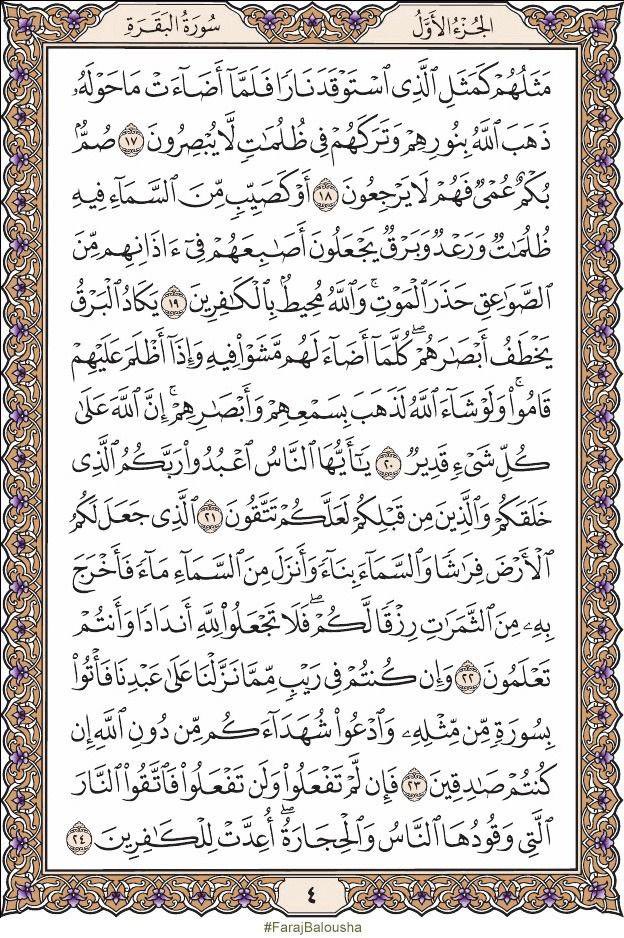 الجُزْءُ الأَوَّلُ
سُورَةُ البَقَرَةِ
مَثَلُهُمْ كَمَثَلِ ٱلَّذِى ٱسْتَوْقَدَ نَارًا فَلَمَّآ أَضَآءَتْ مَا حَوْلَهُۥ
ذَهَبَ ٱللَّهُ بِنُورِهِمْ وَتَرَكَهُمْ فِى ظُلُمَٰتٍ لَّا يُبْصِرُونَ ١٧ صُمٌّۢ
بُكْمٌ عُمْىٌ فَهُمْ لَا يَرْجِعُونَ ١٨ أَوْ كَصَيِّبٍ مِّنَ ٱلسَّمَآءِ فِيهِ
ظُلُمَٰتٌ وَرَعْدٌ وَبَرْقٌ يَجْعَلُونَ أَصَٰبِعَهُمْ فِىٓ ءَاذَانِهِم مِّنَ
ٱلصَّوَٰعِقِ حَذَرَ ٱلْمَوْتِ ۚ وَٱللَّهُ مُحِيطٌۢ بِٱلْكَٰفِرِينَ ١٩ يَكَادُ ٱلْبَرْقُ
يَخْطَفُ أَبْصَٰرَهُمْ ۖ كُلَّمَآ أَضَآءَ لَهُم مَّشَوْا۟ فِيهِ وَإِذَآ أَظْلَمَ عَلَيْهِمْ
قَامُوا۟ ۚ وَلَوْ شَآءَ ٱللَّهُ لَذَهَبَ بِسَمْعِهِمْ وَأَبْصَٰرِهِمْ ۚ إِنَّ ٱللَّهَ عَلَىٰ
كُلِّ شَىْءٍ قَدِيرٌ ٢٠ يَٰٓأَيُّهَا ٱلنَّاسُ ٱعْبُدُوا۟ رَبَّكُمُ ٱلَّذِى
خَلَقَكُمْ وَٱلَّذِينَ مِن قَبْلِكُمْ لَعَلَّكُمْ تَتَّقُونَ ٢١ ٱلَّذِى جَعَلَ لَكُمُ
ٱلْأَرْضَ فِرَٰشًا وَٱلسَّمَآءَ بِنَآءً وَأَنزَلَ مِنَ ٱلسَّمَآءِ مَآءً فَأَخْرَجَ
بِهِۦ مِنَ ٱلثَّمَرَٰتِ رِزْقًا لَّكُمْ ۖ فَلَا تَجْعَلُوا۟ لِلَّهِ أَندَادًا وَأَنتُمْ
تَعْلَمُونَ ٢٢ وَإِن كُنتُمْ فِى رَيْبٍ مِّمَّا نَزَّلْنَا عَلَىٰ عَبْدِنَا فَأْتُوا۟
بِسُورَةٍ مِّن مِّثْلِهِۦ وَٱدْعُوا۟ شُهَدَآءَكُم مِّن دُونِ ٱللَّهِ إِن
كُنتُمْ صَٰدِقِينَ ٢٣ فَإِن لَّمْ تَفْعَلُوا۟ وَلَن تَفْعَلُوا۟ فَٱتَّقُوا۟ ٱلنَّارَ
ٱلَّتِى وَقُودُهَا ٱلنَّاسُ وَٱلْحِجَارَةُ ۖ أُعِدَّتْ لِلْكَٰفِرِينَ ٢٤
٤
#FarajBalousha